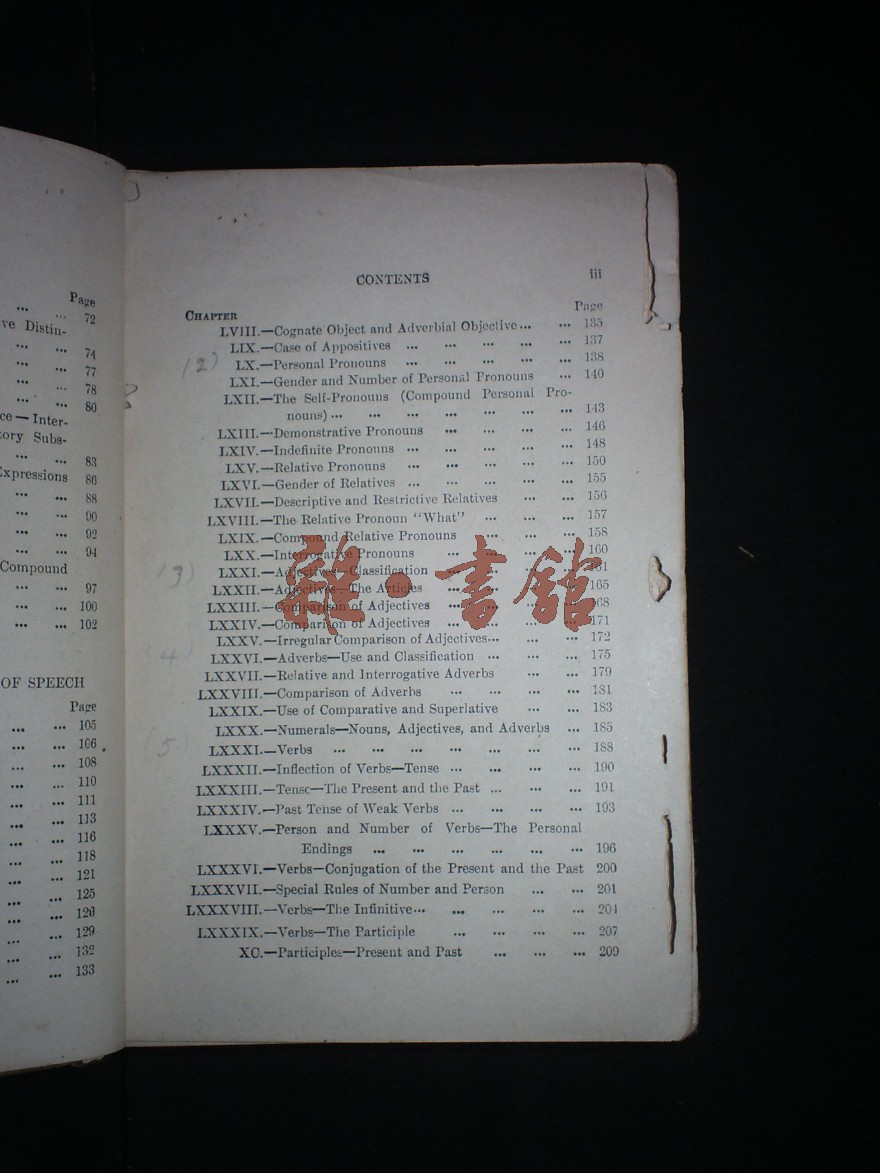 Page
... ... 72
ve Distin-
... ... 74
... ... 77
... ... 78
... ... 80
ce—Inter-
tory Subs-
... ... 83
Expressions 86
... ... 88
... ... 90
... ... 92
... ... 94
Compound
... ... 97
... ... 100
... ... 102
OF SPEECH
Page
... ... 105
... ... 106
... ... 108
... ... 110
... ... 111
... ... 113
... ... 116
... ... 118
... ... 121
... ... 125
... ... 126
... ... 129
... ... 132
... ... 133
CONTENTS iii
CHAPTER Page
LVIII.—Cognate Object and Adverbial Objective... ... 135
LIX.—Case of Appositives ... ... ... ... ... 137
(2) LX.—Personal Pronouns ... ... ... ... ... 138
LXI.—Gender and Number of Personal Pronouns ... 140
LXII.—The Self-Pronouns (Compound Personal Pro-
nouns)... ... ... ... ... ... ... 143
LXIII.—Demonstrative Pronouns ... ... ... ... 146
LXIV.—Indefinite Pronouns ... ... ... ... ... 148
LXV.—Relative Pronouns ... ... ... ... ... 150
LXVI.—Gender of Relatives ... ... ... ... ... 155
LXVII.—Descriptive and Restrictive Relatives ... ... 156
LXVIII.—The Relative Pronoun "What" ... ... ... 157
LXIX.—Compound Relative Pronouns ... ... ... 158
LXX.—Interrogative Pronouns ... ... ... ... 160
(3) LXXI.—Adjectives—Classification ... ... ... ... 161
LXXII.—Adjectives—The Articles ... ... ... ... 165
LXXIII.—Comparison of Adjectives ... ... ... ... 168
LXXIV.—Comparison of Adjectives ... ... ... ... 171
LXXV.—Irregular Comparison of Adjectives... ... ... 172
(4) LXXVI.—Adverbs—Use and Classification ... ... ... 175
LXXVII.—Relative and Interrogative Adverbs ... ... 179
LXXVIII.—Comparison of Adverbs ... ... ... ... 181
LXXIX.—Use of Comparative and Superlative ... ... 183
LXXX.—Numerals—Nouns, Adjectives, and Adverbs ... 185
(5) LXXXI.—Verbs ... ... ... ... ... ... ... 188
LXXXII.—Inflection of Verbs—Tense ... ... ... ... 190
LXXXIII.—Tense—The Present and the Past ... ... ... 191
LXXXIV.—Past Tense of Weak Verbs ... ... ... ... 193
LXXXV.—Person and Number of Verbs—The Personal
Endings ... ... ... ... ... ... 196
LXXXVI.—Verbs—Conjugation of the Present and the Past 200
LXXXVII.—Special Rules of Number and Person ... ... 201
LXXXVIII.—Verbs—The Infinitive... ... ... ... ... 204
LXXXIX.—Verbs—The Participle ... ... ... ... 207
XC.—Participles—Present and Past ... ... ... 209
雜·書館